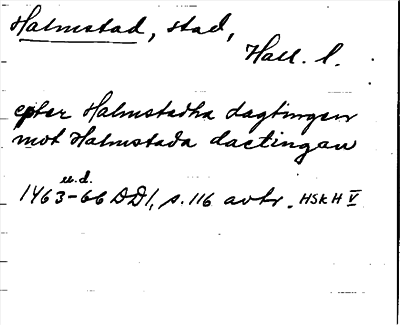 Halmstad, stad,
Hall. l.
epter Halmstadha dagtingen
mot Halmstada dactingan
u.d.
1463-66 DD1, s. 116 avtr. HSkH V